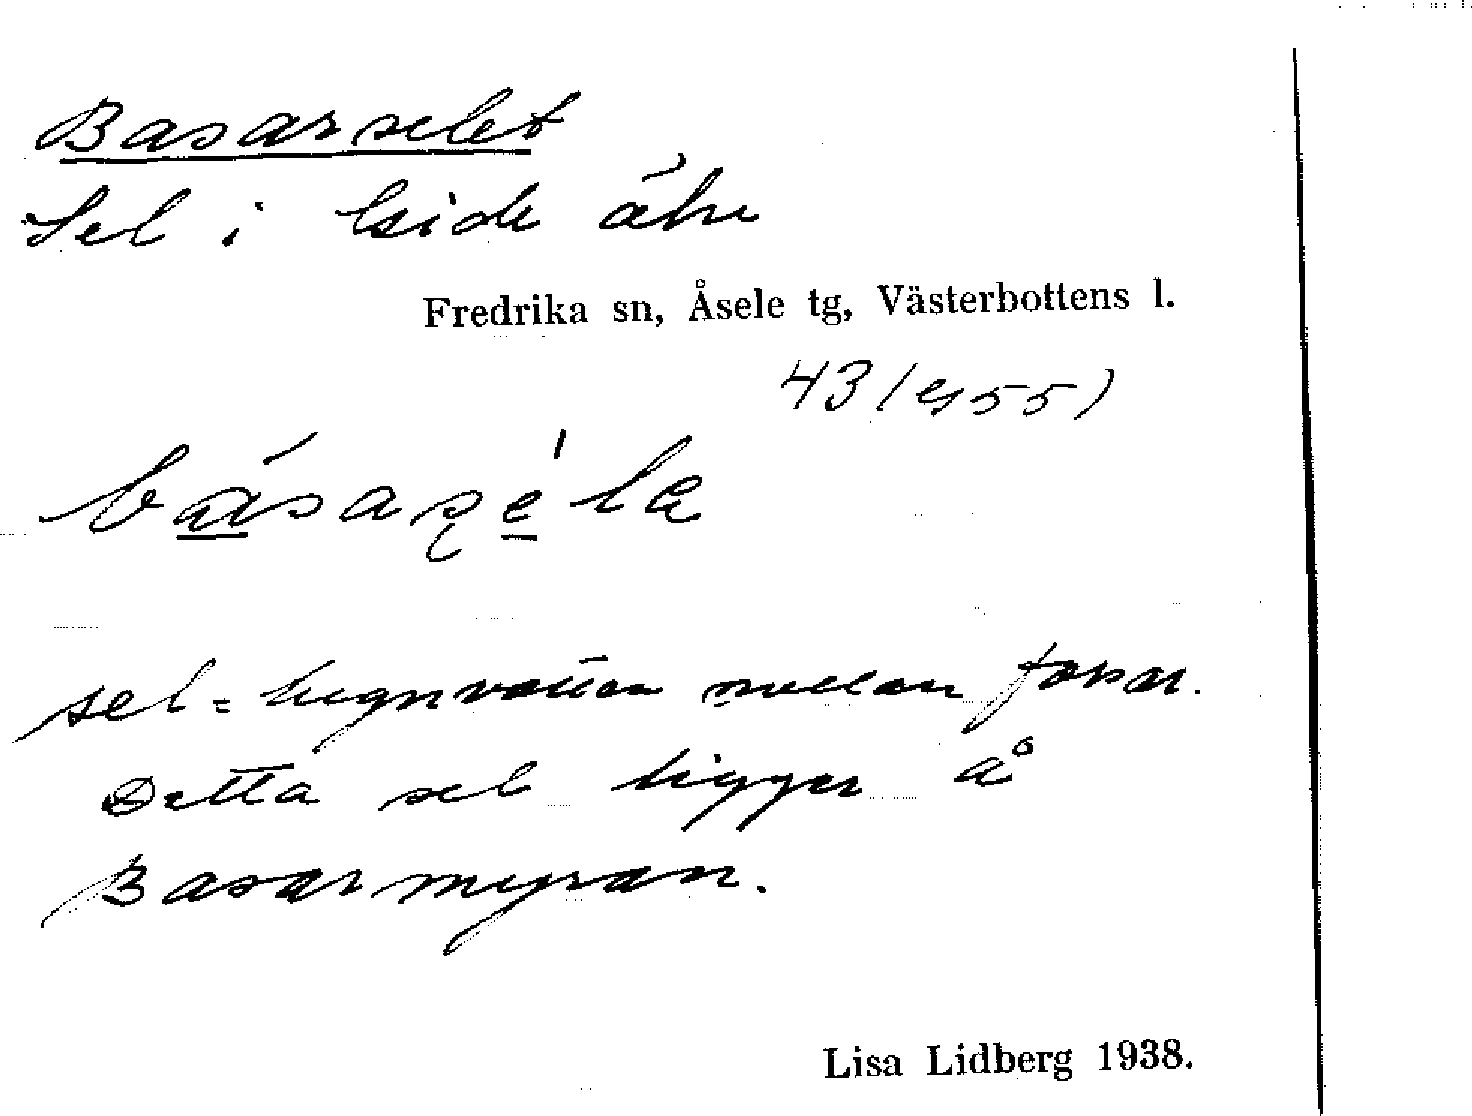 Basarselet
Sel i Lside älve
Fredrika sn, Åsele tg, Västerbottens l.
43 (4155)
básaşéla
sel = lugnvatten mellan forsar.
Detta sel ligger å
Basarmyran.
Lisa Lidberg 1938.